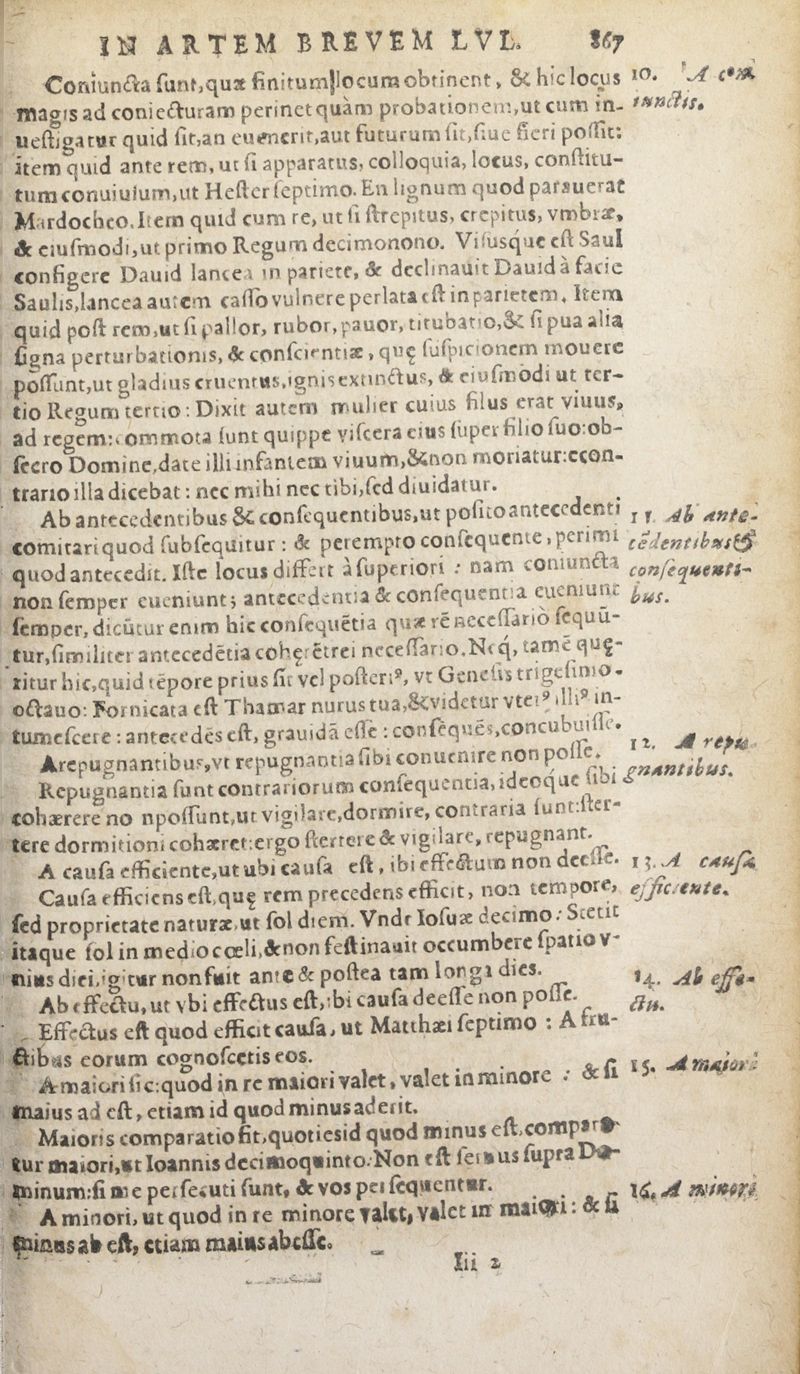 IN ARTEM BREVEM LVL. 867
Coniuncta sunt, quæ finitum locum obtinent, & hic locus
10. A con
iunctis.
magis ad coniecturam perinet quàm probationem, ut cum in-
uestigatur quid sit, an euenerit, aut futurum sit, siue fieri possit:
item quid ante rem, ut si apparatus, colloquia, locus, constitu-
tum conuiuium, ut Hester septimo. En lignum quod parauerat
Mardocheo. Item quid cum re, ut si strepitus, crepitus, vmbræ,
& eiusmodi, ut primo Regum decimonono. Visusque est Saul
configere Dauid lancea in pariete, & declinauit Dauid à facie
Saulis, lancea autem casso vulnere perlata est in parietem. Item
quid post rem, ut si pallor, rubor, pauor, titubatio, & si pua alia
signa perturbationis, & conscientiæ, quę suspicionem mouere
possunt, ut gladius cruentus, ignis extinctus, & eiusmodi ut ter-
tio Regum tertio: Dixit autem mulier cuius filus erat viuus,
ad regem: commota sunt quippe viscera eius super filio suo: ob-
secro Domine, date illi infantem viuum, & non moriatur: econ-
trario illa dicebat: nec mihi nec tibi, sed diuidatur.
Ab antecedentibus & consequentibus, ut posito antecedenti
11. Ab ante-
cēdentibus &
consequenti-
bus.
comitari quod subsequitur: & perempto consequente, perimi
quod antecedit. Iste locus differt à superiori: nam coniuncta
non semper eueniunt; antecedentia & consequentia eueniunt
semper, dicūtur enim hic consequētia quæ rē necessario sequu-
tur, similiter antecedētia cohęrēt rei necessario. Neq, tamē quę-
ritur hic, quid tēpore prius sit vel posteriꝰ, vt Genesis trigesimo-
octauo: Fornicata est Thamar nurus tua, & videtur vterꝰ illiꝰ in-
tumescere: antecedēs est, grauidā esse: consequēs, concubuisse.
A repugnantibus, vt repugnantia sibi conuenire non posse.
12. A repu-
gnantibus.
Repugnantia sunt contrariorum consequentia, ideoque sibi
cohærere no npossunt, ut vigilare, dormire, contraria sunt: ster-
tere dormitioni cohæret: ergo stertere & vigilare, repugnant.
A causa efficiente, ut ubi causa est, ibi effectum non deesse.
13. A causa
efficiente.
Causa efficiens est, quę rem precedens efficit, non tempore,
sed proprietate naturæ, ut sol diem. Vnde Iosuæ decimo: Stetit
itaque sol in medio cœli, & non festinauit occumbere spatio v-
nius diei, igitur non fuit ante & postea tam longa dies.
Ab effectu, ut vbi effectus est, ibi causa deesse non posse.
14. Ab effe-
ctu.
Effectus est quod efficit causa, ut Matthæi septimo: A fru-
ctibus eorum cognoscetis eos.
A maiori sic: quod in re maiori valet, valet in minore: & si
15. A maiori
maius ad est, etiam id quod minus aderit.
Maioris comparatio fit, quoties id quod minus est, compara-
tur maiori, vt Ioannis decimoquinto. Non est seruus supra Do-
minum: si me persecuti sunt, & vos persequentur.
A minori, ut quod in re minore valet, valet in maiori: & si
16. A minori
minus ab est, etiam maius abesse.
Iii 2